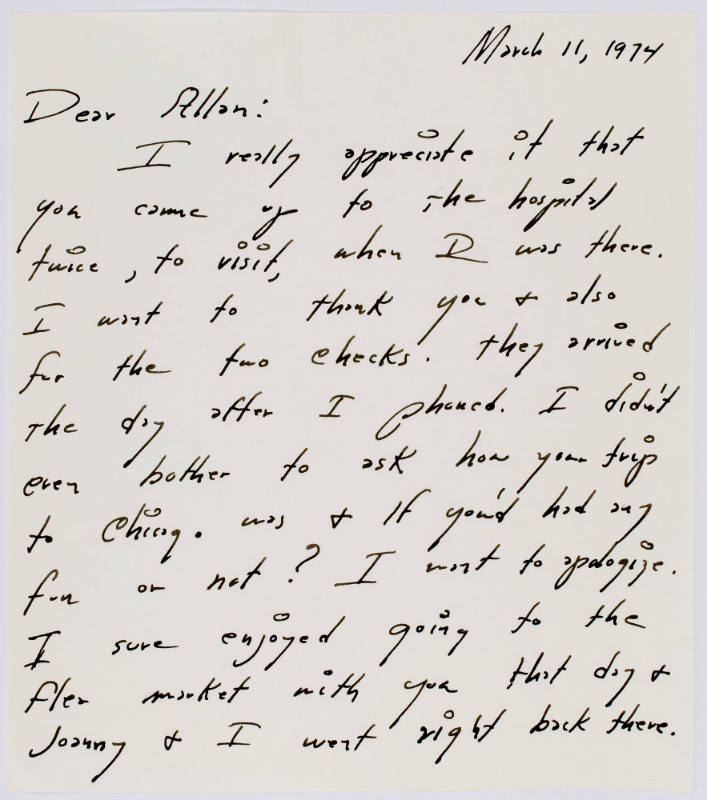 March 11, 1974
Dear Allan:
I really appreciate it that
you came up to the hospital
twice, to visit, when I was there.
I want to thank you & also
for the two checks. They arrived
the day after I phoned. I didn't
even bother to ask how your trip
to Chicag. was & If you'd had any
fun or not? I want to apologize.
I sure enjoyed going to the
flea market with you that day &
Joanny & I went right back there.